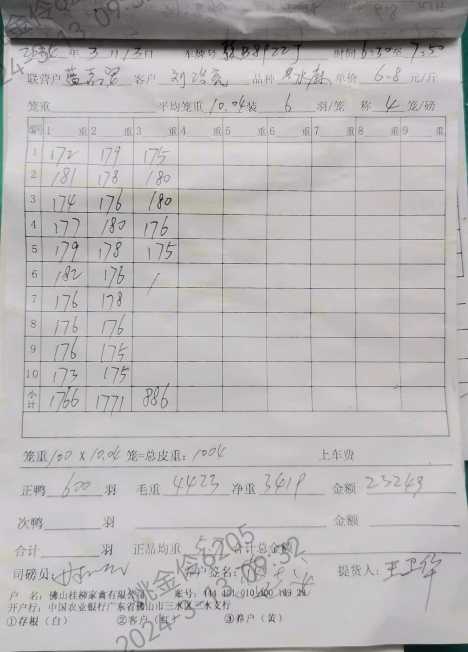 2024年3月13日 车牌号 时间6:30至7:50
联营户 客户 品种 单价 6.8 元/斤
笼重 平均笼重 10.04 装 6 羽/笼 称 4 笼/磅
编 1 重 2 重 3 重 4 重 5 重 6 重 7 重 8 重 9 重
1 172 179 175
2 181 178 180
3 174 176 180
4 177 180 176
5 179 178 175
6 182 176 /
7 176 178
8 176 176
9 176 175
10 173 175
小计 1766 1771 886
笼重 100 X 10.04 笼=总皮重: 1004 上车费
正鸭 600 羽 毛重 4423 净重 3419 金额 23249
次鸭 羽 金额
合计 羽 正品均重 5 合计总金额
司磅员: 客户签名: 提货人: 王卫华
户 名: 佛山桂柳家禽有限公司 账号:
开户行: 中国农业银行广东省佛山市三水区 水支行
①存根(白) ②客户(红) ③养户(黄)
姚金伶6205
2024-3-13 09:32